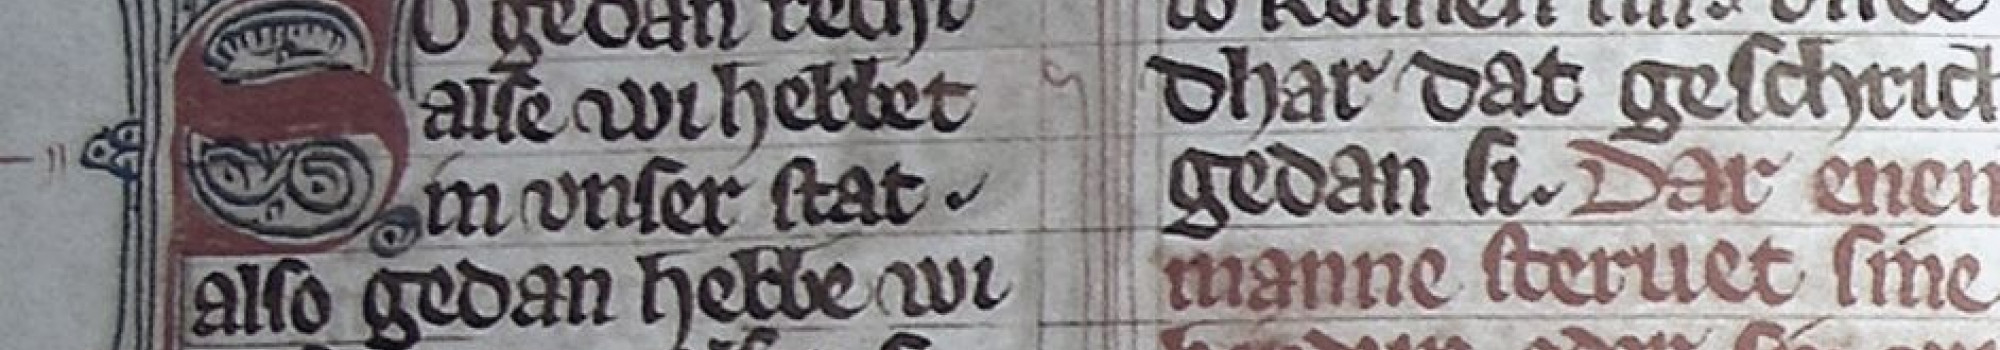 SO gedan recht
alse wi hebbet
in vnser stat.
also gedan hebbe wi
to komen
dhar dat geschrich
gedan si. Dar enen
manne steruet sine